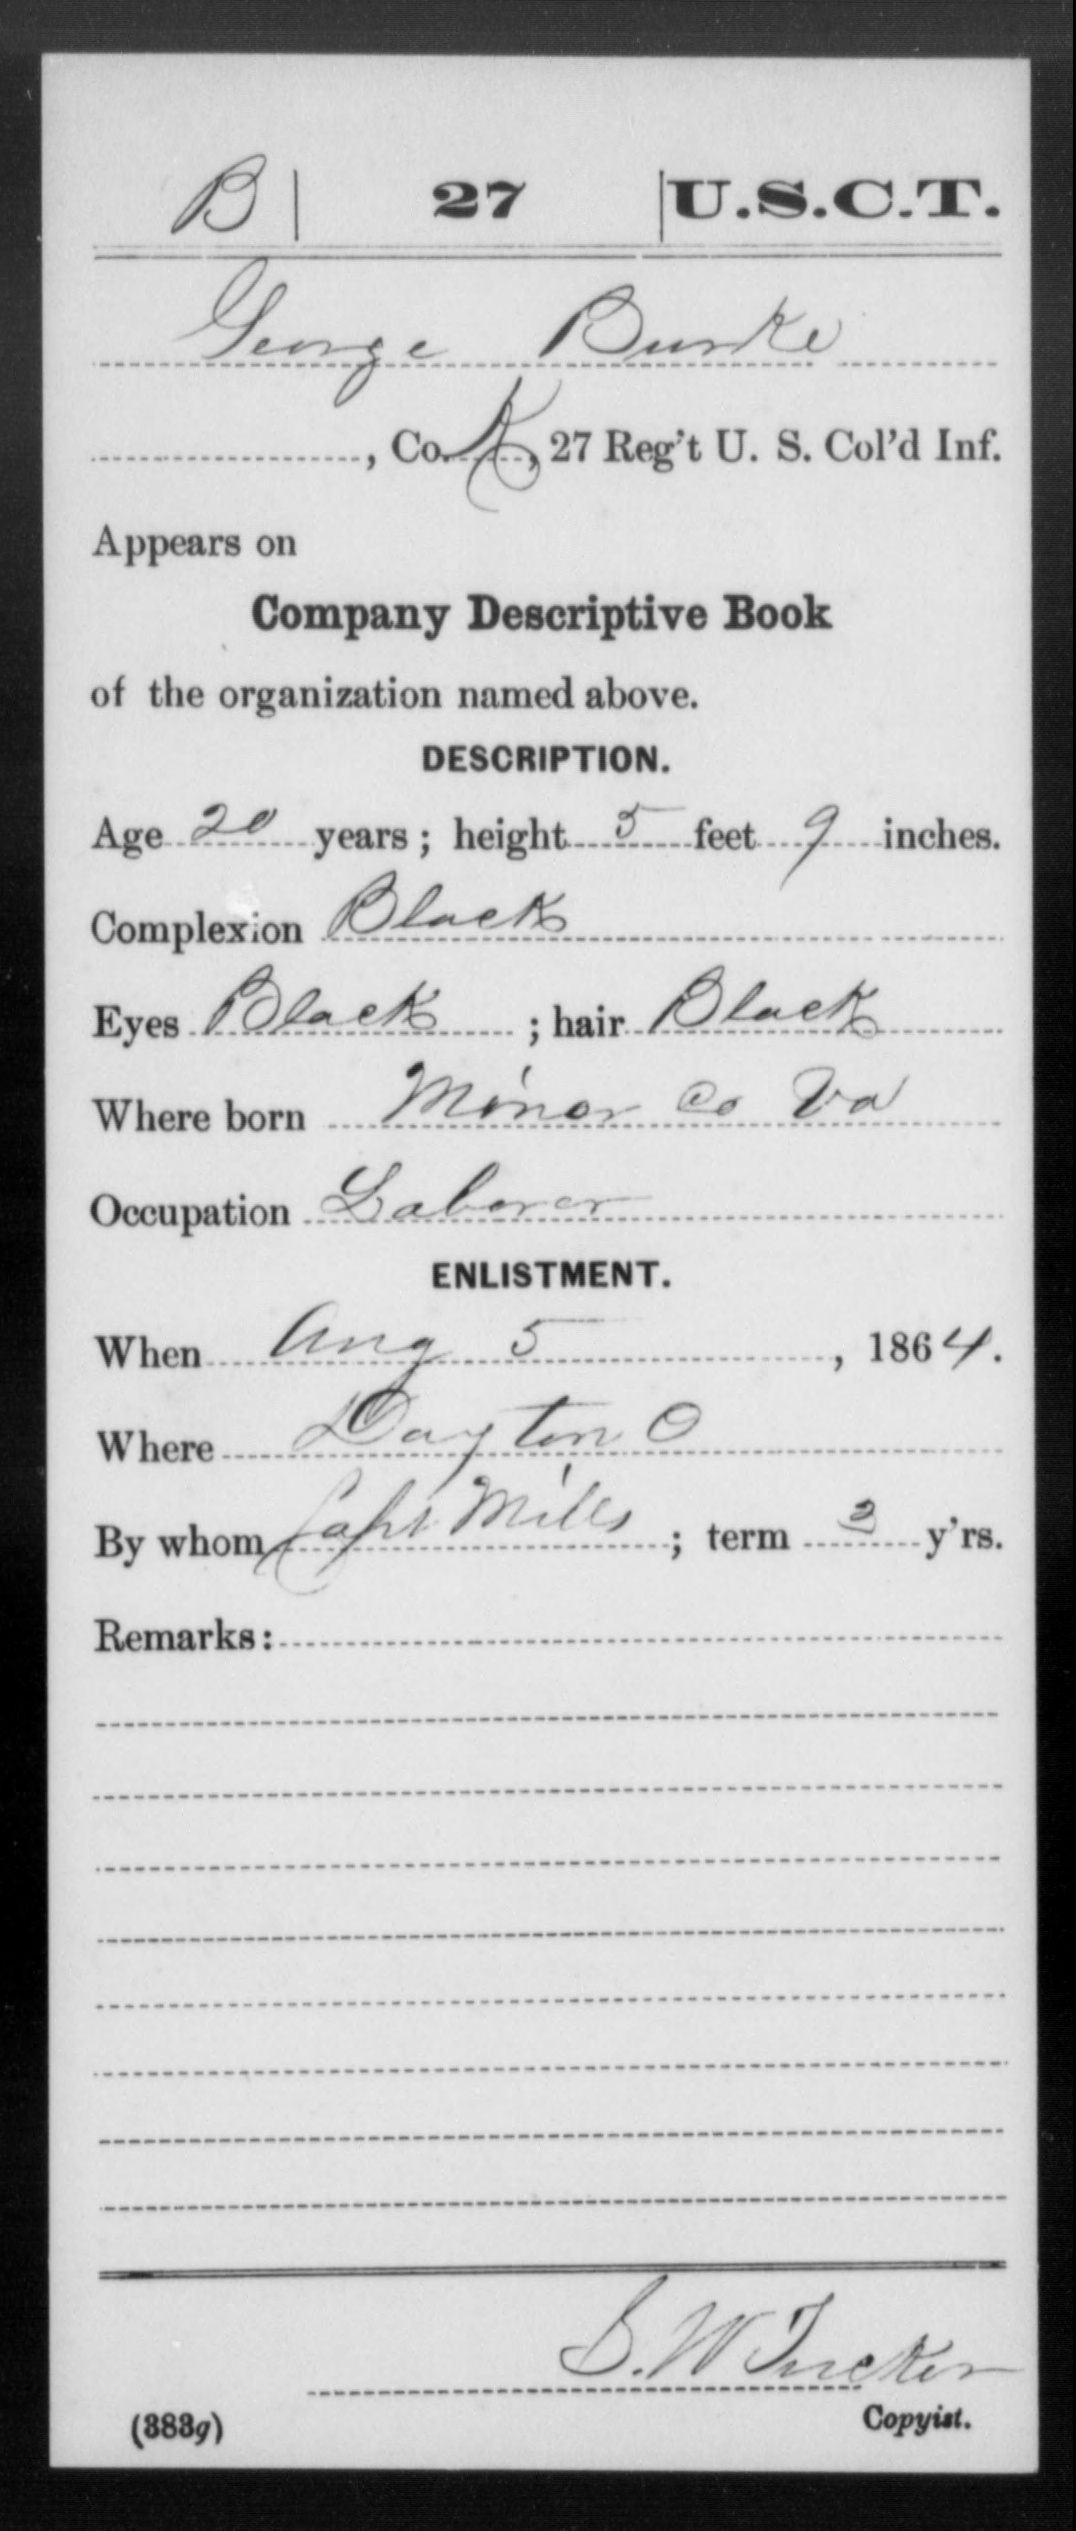 B | 27 | U.S.C.T.
George Burke
, Co. K, 27 Reg't U. S. Col'd Inf.
Appears on
Company Descriptive Book
of the organization named above.
DESCRIPTION.
Age 20 years; height 5 feet 9 inches.
Complexion Black
Eyes Black; hair Black
Where born Minor Co Va
Occupation Laborer
ENLISTMENT.
When Aug 5, 1864.
Where Dayton O
By whom Capt Mills; term y'rs.
Remarks:
S. W Tucker
(383g) Copyist.